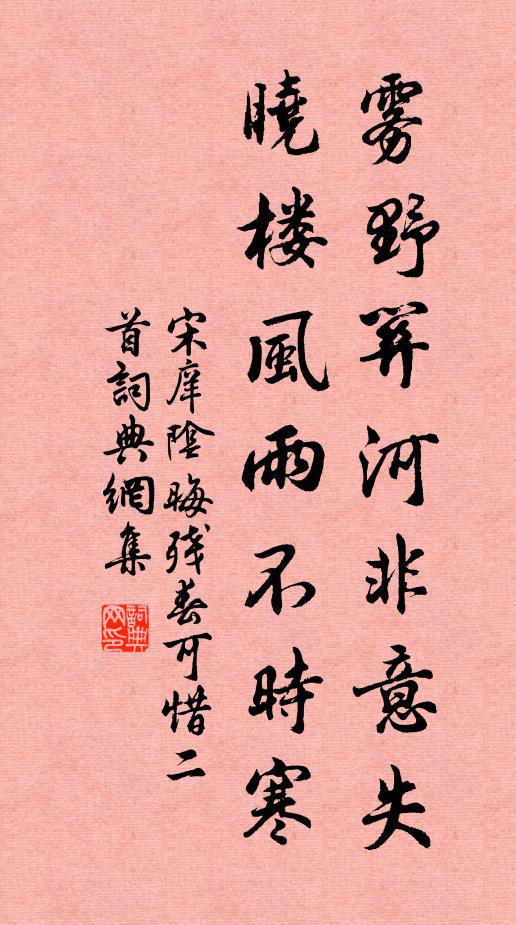 雾野关河非意失
曉楼風雨不時寒
宋庠陰晦残春可惜二
首詞典網集
詞典网印